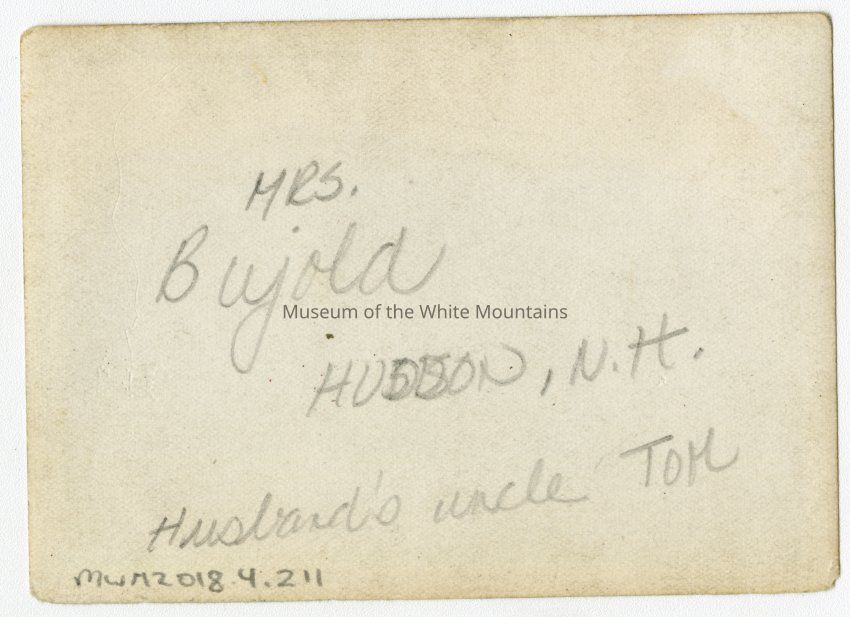 MRS.
Bujold
Museum of the White Mountains
HUDSON, N.H.
Husband's uncle TOM
MWM2018.4.211